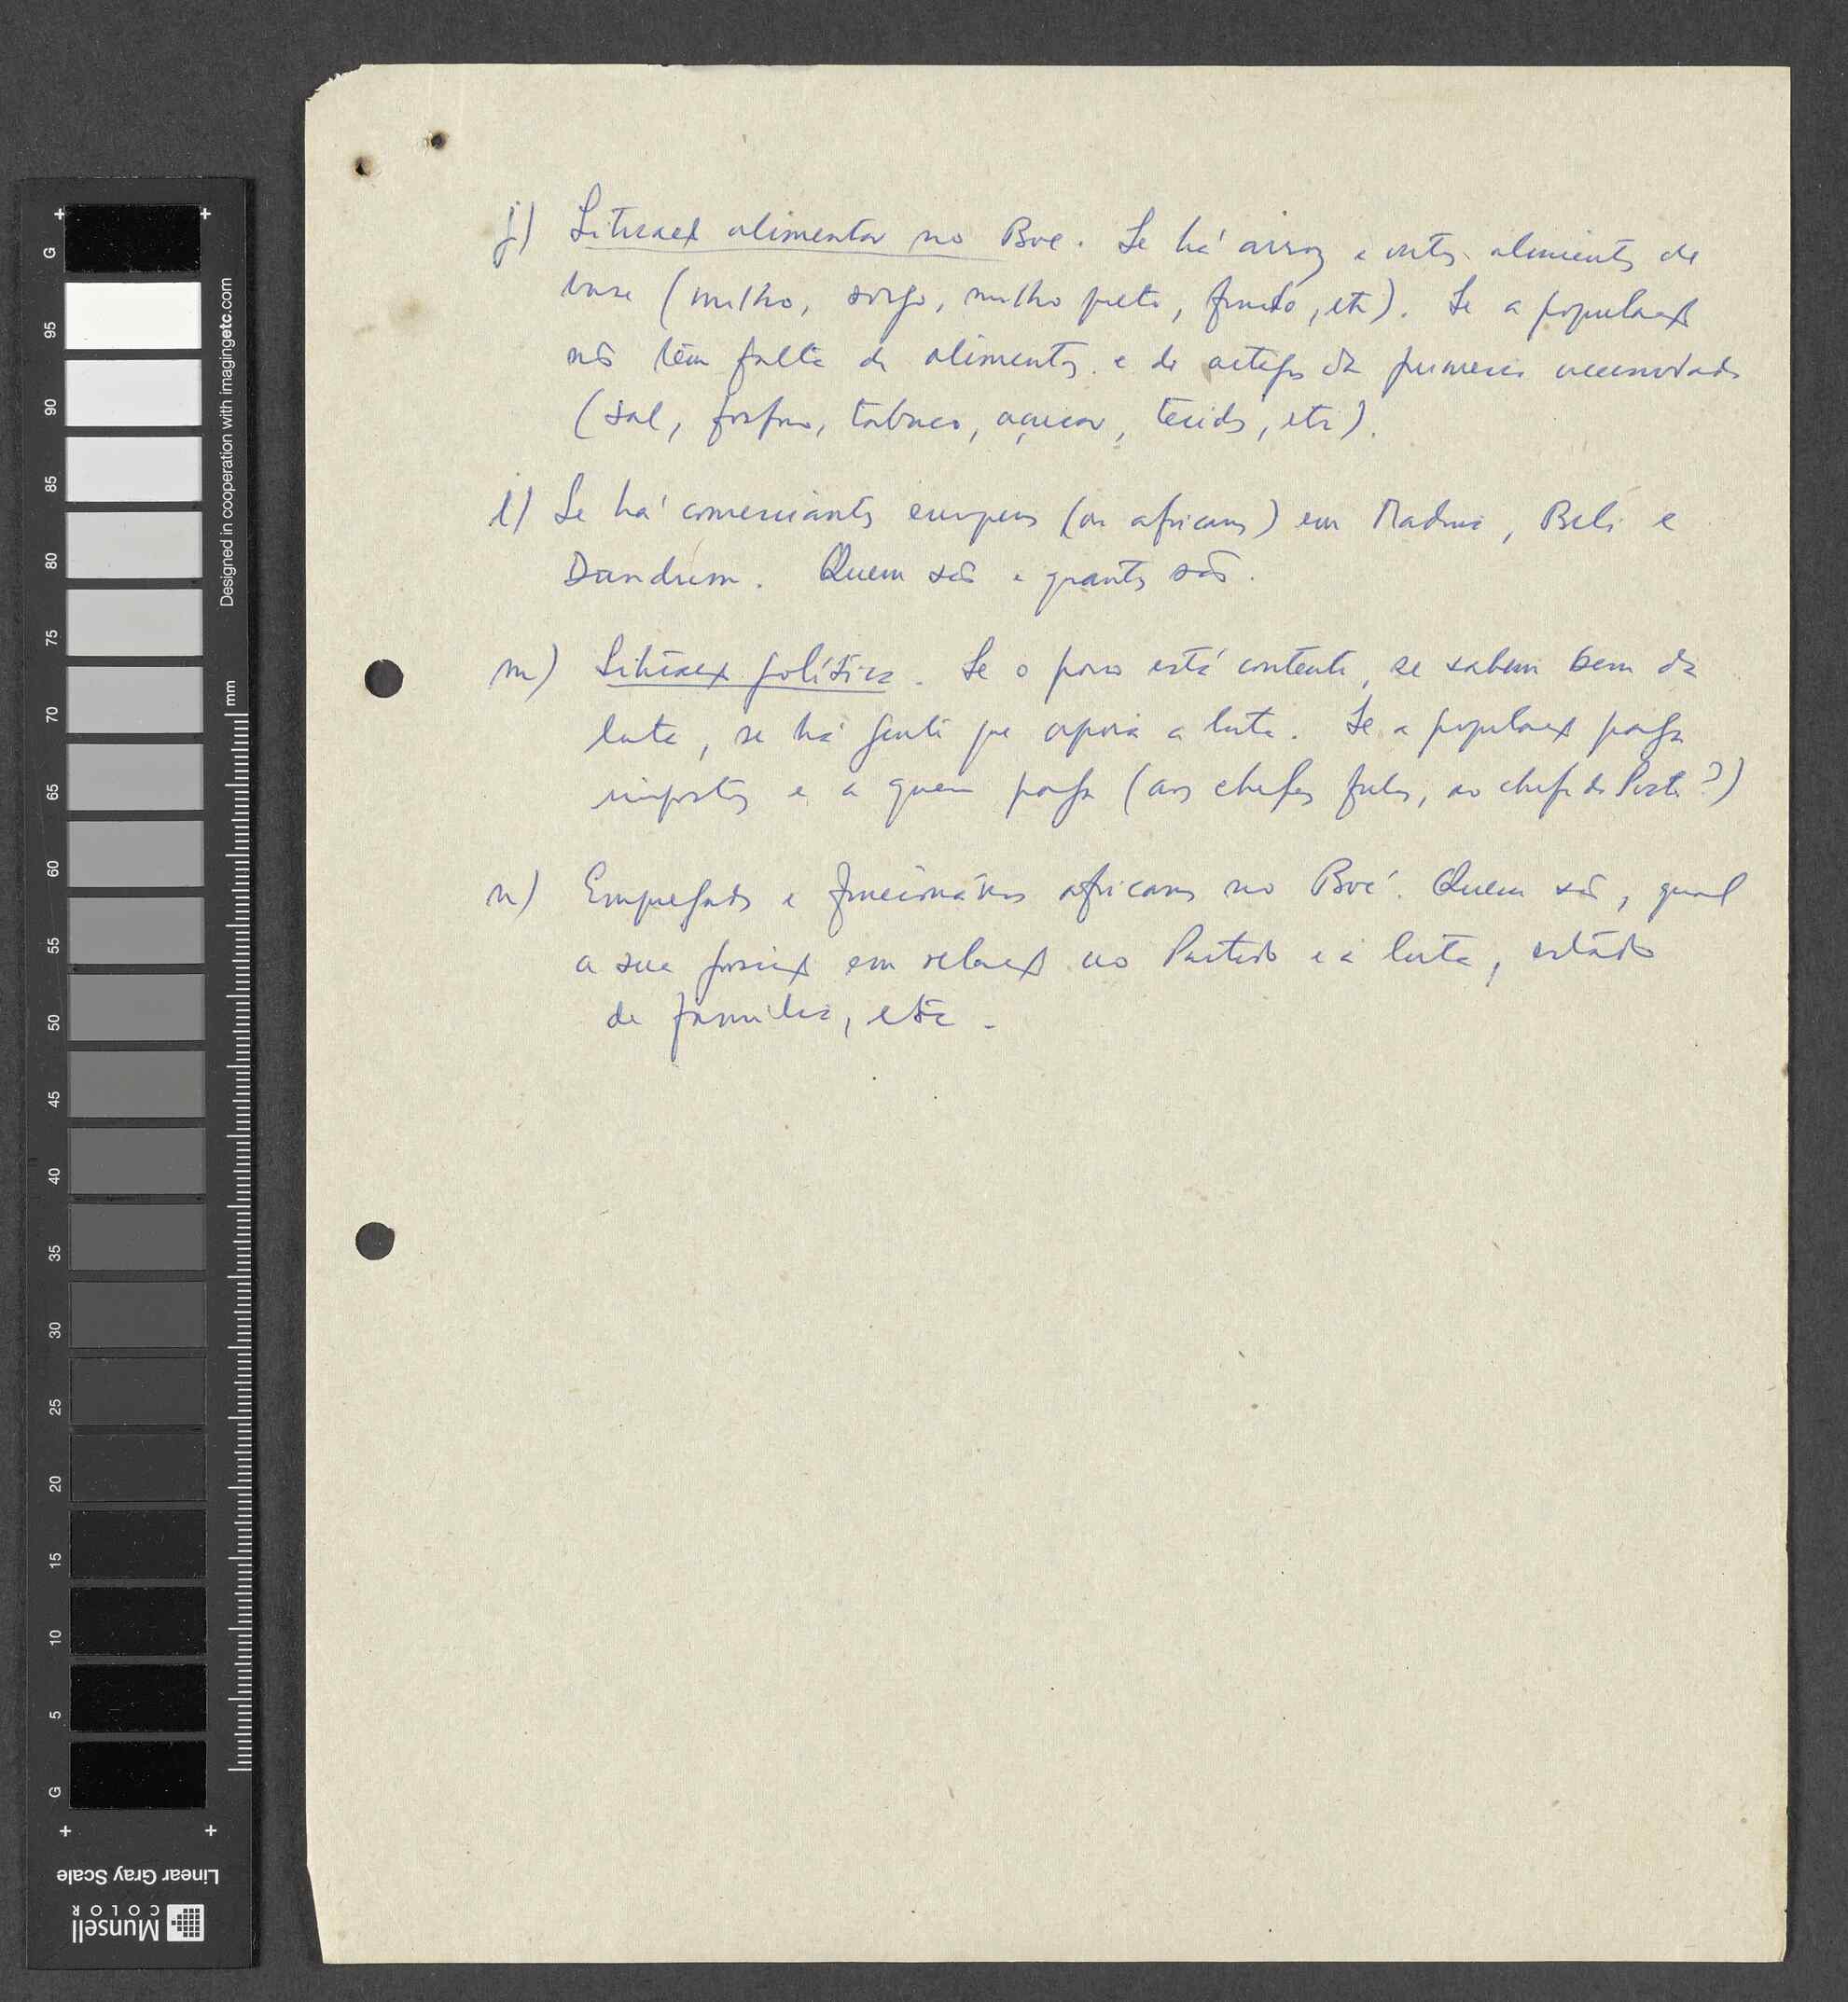 j) Situação alimentar no Boé. Se há arroz e outros alimentos de
base (milho, sorgo, milho preto, fundo, etc). Se a população
não tem falta de alimentos e de artigos de primeira necessidade
(sal, fosforo, tabaco, açucar, tecidos, etc).
l) Se há comerciantes europeus (ou africanos) em Madina, Beli e
Dandum. Quem são e quantos são.
m) Situação política. Se o povo está contente, se sabem bem da
luta, se há gente que apoia a luta. Se a população paga
impostos e a quem paga (aos chefes fulas, ao chefe de Posto?)
n) Empregados e funcionários africanos no Boé. Quem são, qual
a sua posição em relação ao Partido e à luta, estado
de familia, etc.
G
95
90
85
80
75
70
65
60
55
50
45
40
35
30
25
20
15
10
5
G
mm
Designed in cooperation with imagingetc.com
Linear Gray Scale
Munsell
COLOR